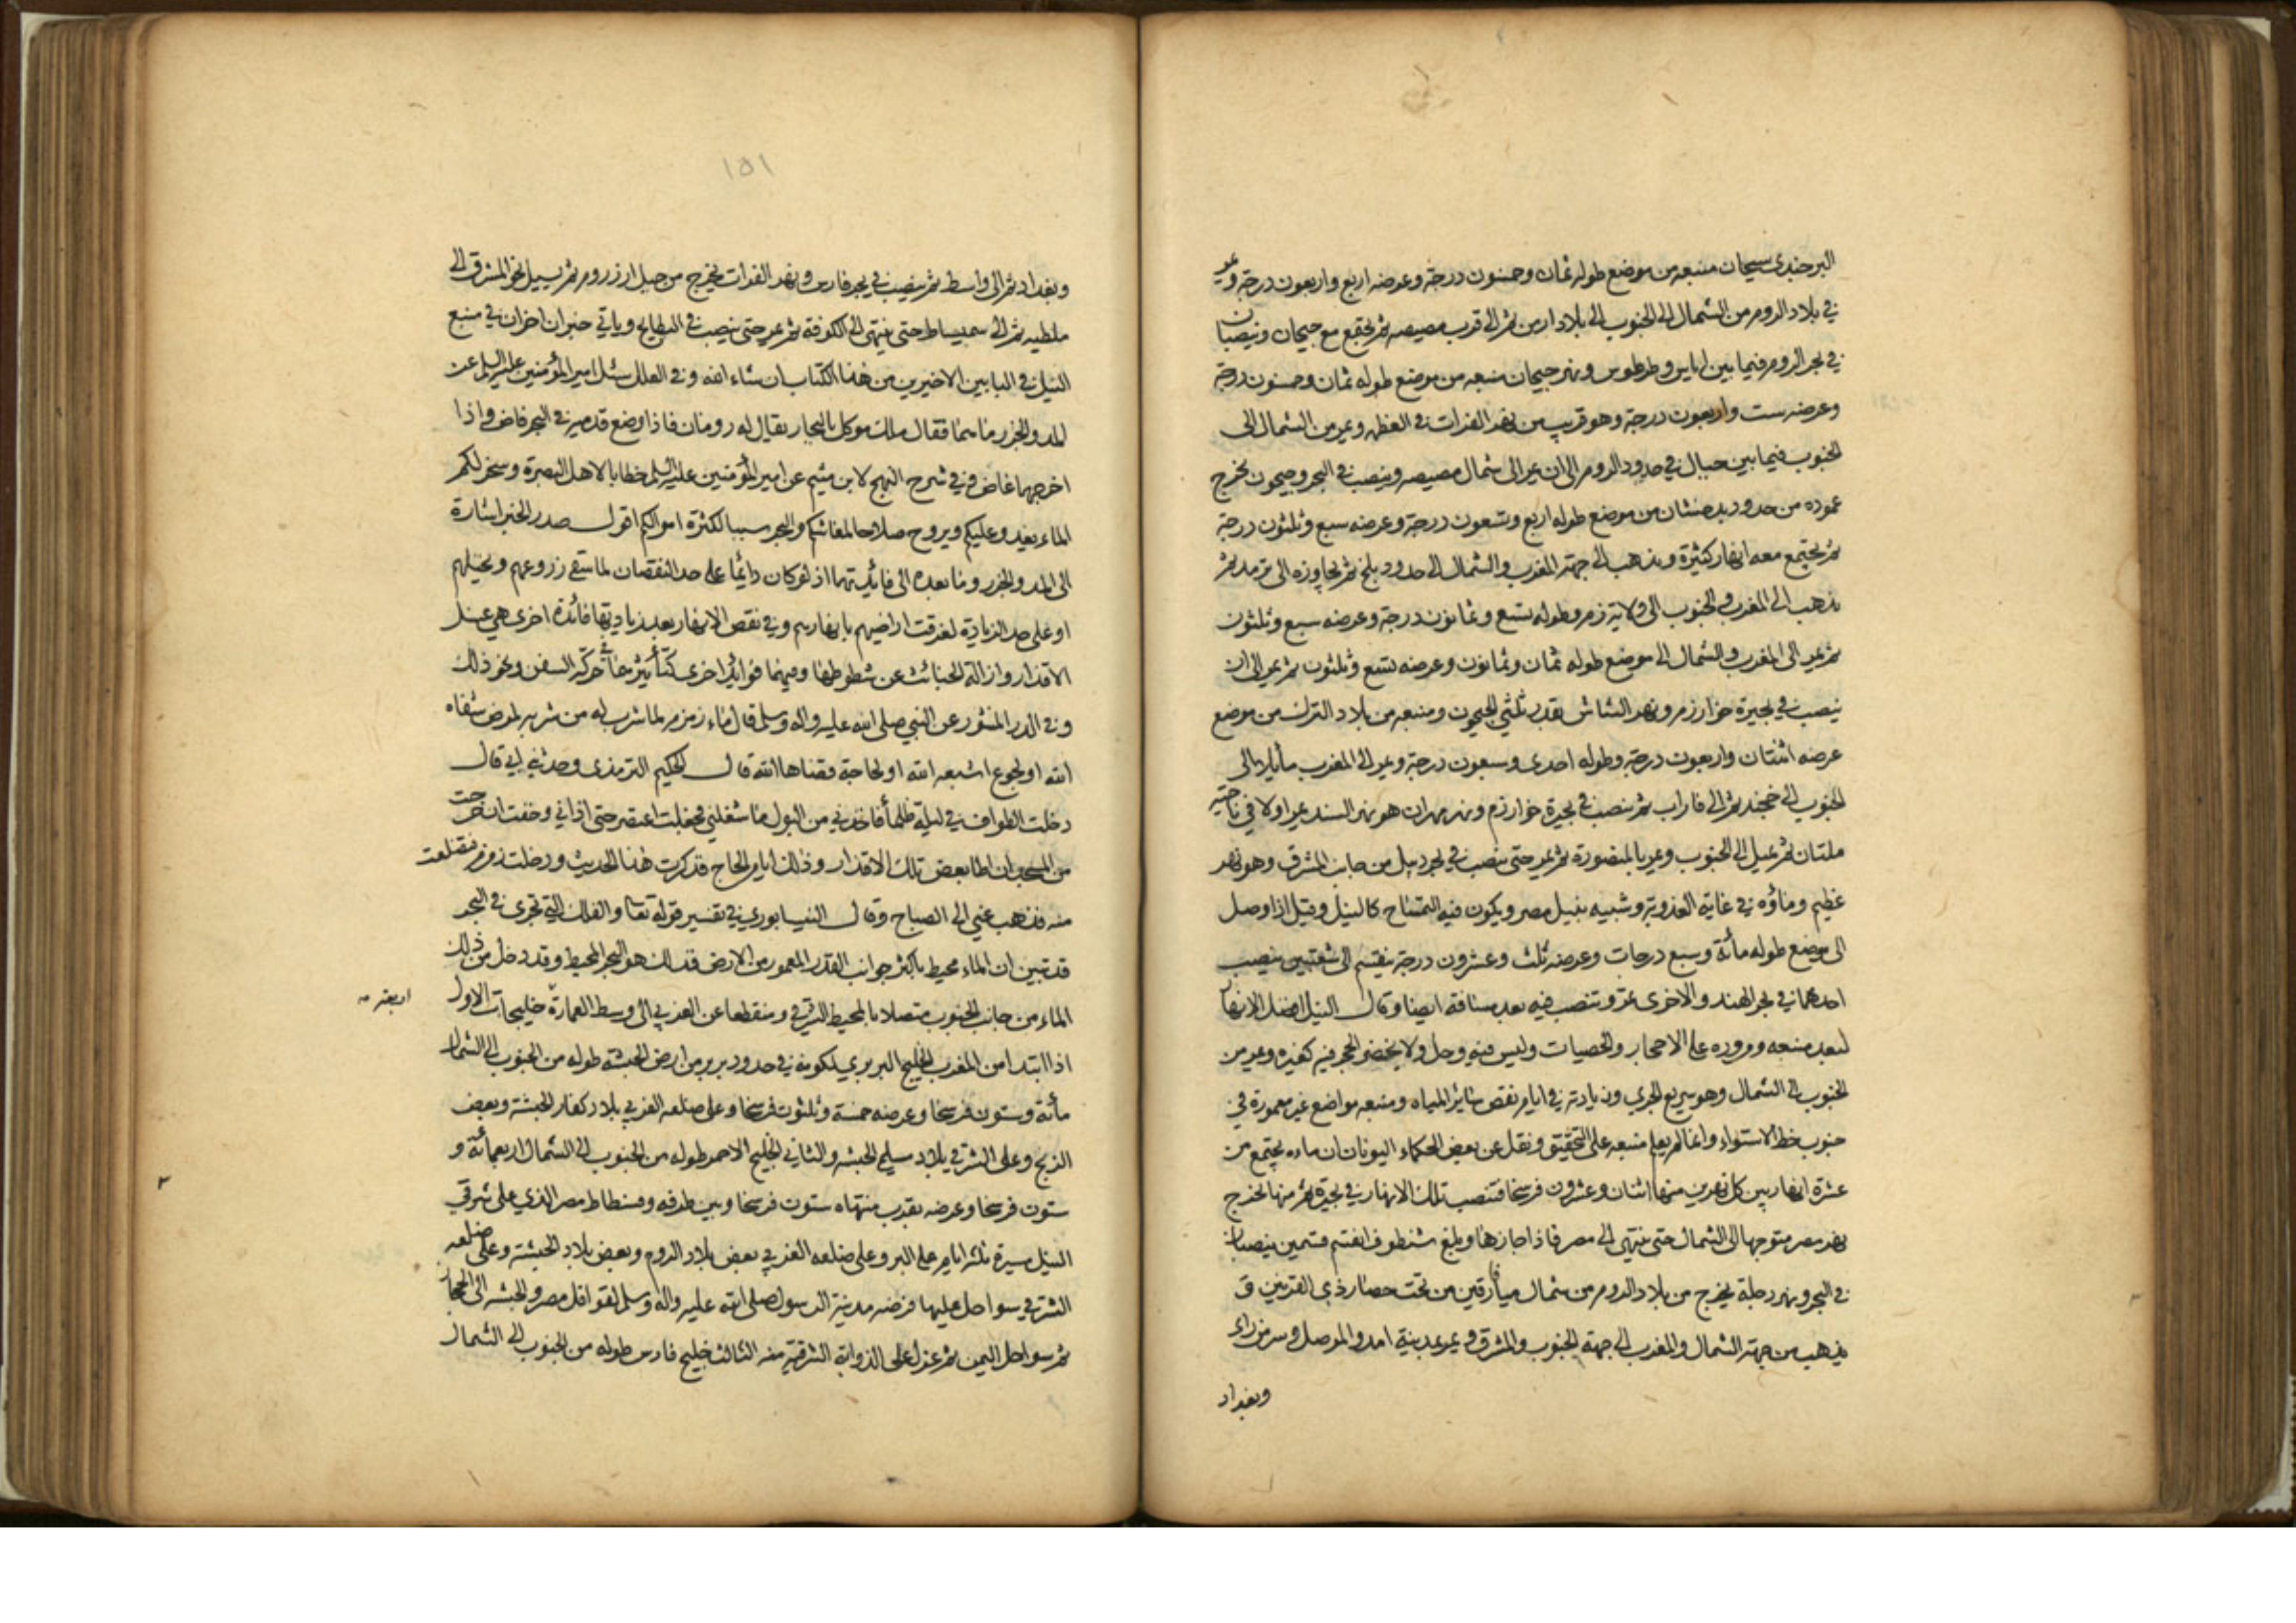 البرجندي سيحان منبعه من موضع طوله ثمان وخمسون درجة وعرضه اربع واربعون درجة ويمر
في بلاد الروم من الشمال الى الجنوب الى بلاد ارمن ثم الى قرب مصيصه ثم يجتمع مع جيحان وينصبان
في بحر الروم فيما بين اياس وطرطوس ونهر جيحان منبعه من موضع طوله ثمان وخمسون درجة
وعرضه ست واربعون درجة وهو قريب من نهر الفرات في العظم ويمر من الشمال الى
الجنوب فيما بين جبال في حدود الروم الى ان يمر الى شمال مصيصه وينصب في البحر وجيحون يخرج
عموده من حدود بدخشان من موضع طوله اربع وتسعون درجة وعرضه سبع وثلثون درجة
ثم يجتمع معه انهار كثيرة ويذهب الى جهة المغرب والشمال الى حدود بلخ ثم يجاوزه الى ترمد ثم
يذهب الى المغرب والجنوب الى ولاية زم وطوله تسع وثمانون درجة وعرضه سبع وثلثون
ثم يمر الى المغرب والشمال الى موضع طوله ثمان وثمانون وعرضه تسع وثلثون ثم يمر الى ان
ينصب في بحيرة خوارزم ونهر الشاش بقدر ثلثي الجيحون ومنبعه من بلاد الترك من موضع
عرضه اثنتان واربعون درجة وطوله احدى وسبعون درجة ويمر الى المغرب مايلا الى
الجنوب الى خجند ثم الى فاراب ثم ينصب في بحيرة خوارزم ونهر مهران هو نهر السند يمر اولا في ناحية
ملتان ثم يميل الى الجنوب ويمر بالمنصورة ثم يمر حتى ينصب في بحر ديبل من جانب المشرق وهو نهر
عظيم وماؤه في غاية العذوبة وشبيه بنيل مصر ويكون فيه التمساح كالنيل وقيل اذا وصل
الى موضع طوله مائة وسبع درجات وعرضه ثلث وعشرون درجة ينقسم الى شعبتين ينصب
احدهما في بحر الهند والاخرى تمر وتنصب فيه بعد مسافة ايضا وقال النيل افضل الانهار
لبعد منبعه ومروره على الاحجار والحصيات وليس فيه وحل ولا يخضر الحجر فيه كغيره ويمر من
الجنوب الى الشمال وهو سريع الجري وزيادته في ايام نقص ساير المياه ومنبعه مواضع غير معمورة في
جنوب خط الاستواء وانما لم يعلم منبعه على التحقيق ونقل عن بعض الحكماء اليونان ان ماءه يجتمع من
عشرة انهار بين كل نهرين منها اثنان وعشرون فرسخا فتنصب تلك الانهار في بحيرة ثم منها تخرج
نهر مصر متوجها الى الشمال حتى ينتهي الى مصر فاذا جازها وبلغ شنطوف انقسم قسمين ينصبان
في البحر ونهر دجلة يخرج من بلاد الروم من شمال ميافارقين من تحت حصار ذي القرنين و
يذهب من جهة الشمال والمغرب الى جهة الجنوب والمشرق ويمر بمدينة امد والموصل وسر من راى
وبغداد
١٥١
وبغداد ثم الى واسط ثم ينصب في بحر فارس ونهر الفرات يخرج من جبل ارزروم ثم يسيل نحو المشرق الى
ملطيه ثم الى سميساط حتى ينتهي الى الكوفة ثم يمر حتى ينصب في البطايح وياتي خبران اخران في منبع
النيل في البابين الاخيرين من هذا الكتاب ان شاء الله وفي العلل سئل امير المؤمنين عليه السلم عن
المد والجزر ما هما فقال ملك موكل بالبحار يقال له رومان فاذا وضع قدميه في البحر فاض واذا
اخرجهما غاض وفي شرح النهج لابن ميثم عن امير المؤمنين عليه السلم خطابا لاهل البصرة وسخر لكم
الماء يغدو عليكم ويروح صلاحا لمعاشكم والبحر سببا لكثرة اموالكم اقول صدر الخبر اشارة
الى المد والجزر وما بعده الى فائدتهما اذ لو كان دائما على حد النقصان لما سقى زروعهم ونخيلهم
او على حد الزيادة لغرقت اراضيهم بانهارهم وفي نقص الانهار بعد زيادتها فائدة اخرى هي غسل
الاقذار وازالة الخبائث عن شطوطها وفيهما فوايد اخرى كتأثيرهما في حركة السفن ونحو ذلك
وفي الدر المنثور عن النبي صلى الله عليه واله وسلم قال ماء زمزم لما شرب له من شربه لمرض شفاه
الله او لجوع اشبعه الله او لحاجة قضاها الله قال الحكيم الترمذي وحدثني ابي قال
دخلت الطواف في ليلة ظلماء فاخذني من البول ما شغلني فجعلت اعتصر حتى اذاني وخفت ان خرجت
من المسجد ان اطا بعض تلك الاقذار وذلك ايام الحاج فذكرت هذا الحديث ودخلت زمزم فتضلعت
منه فذهب عني الى الصباح وقال النيسابوري في تفسير قوله تعا والفلك التي تجري في البحر
قد تبين ان الماء محيط باكثر جوانب القدر المعمور من الارض فذلك هو البحر المحيط وقد دخل من ذلك
الماء من جانب الجنوب متصلا بالمحيط الشرقي ومنقطعا عن الغربي الى وسط العمارة خليجات الاول
اربعة
اذا ابتدا من المغرب الخليج البربري لكونه في حدود بربر من ارض الحبشة طوله من الجنوب الى الشمال
مأئة وستون فرسخا وعرضه خمسة وثلثون فرسخا وعلى ضلعه الغربي بلاد كفار الحبشة وبعض
الزنج وعلى الشرقي بلاد مسلمي الحبشه والثاني الخليج الاحمر طوله من الجنوب الى الشمال اربعمائة و
ستون فرسخا وعرضه بقرب منتهاه ستون فرسخا وبين طرفه وفسطاط مصر الذي على شرقي
النيل مسيرة ثلثه ايام على البر وعلى ضلعه الغربي بعض بلاد الروم وبعض بلاد الحبشة وعلى ضلعه
الشرقي سواحل عليها فرضه مدينة الرسول صلى الله عليه واله وسلم لقوافل مصر والحبشه الى الحجاز
ثم سواحل اليمن ثم عدن على الزواية الشرقية منه الثالث خليج فارس طوله من الجنوب الى الشمال